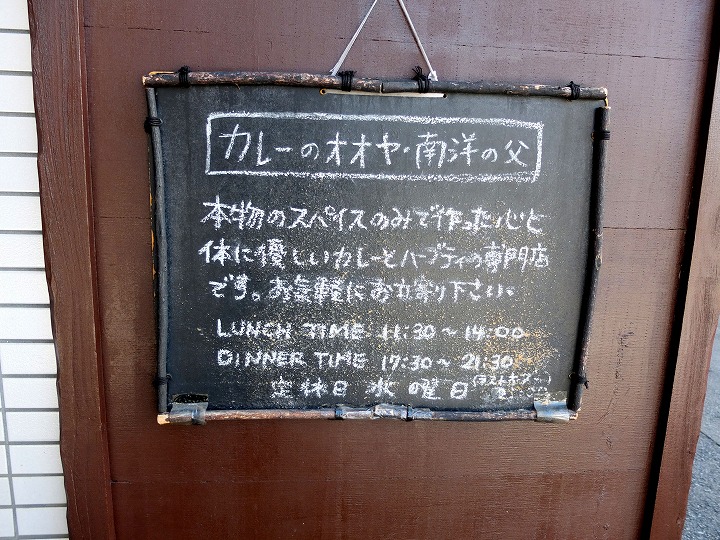 カレーのオオヤ・南洋の父
本物のスパイスのみで作った心と
体に優しいカレーとハーブティの専門店
です。お気軽にお立寄り下さい。
LUNCH TIME 11:30～14:00
DINNER TIME 17:30～21:30
定休日 水曜日 (ラストオーダー